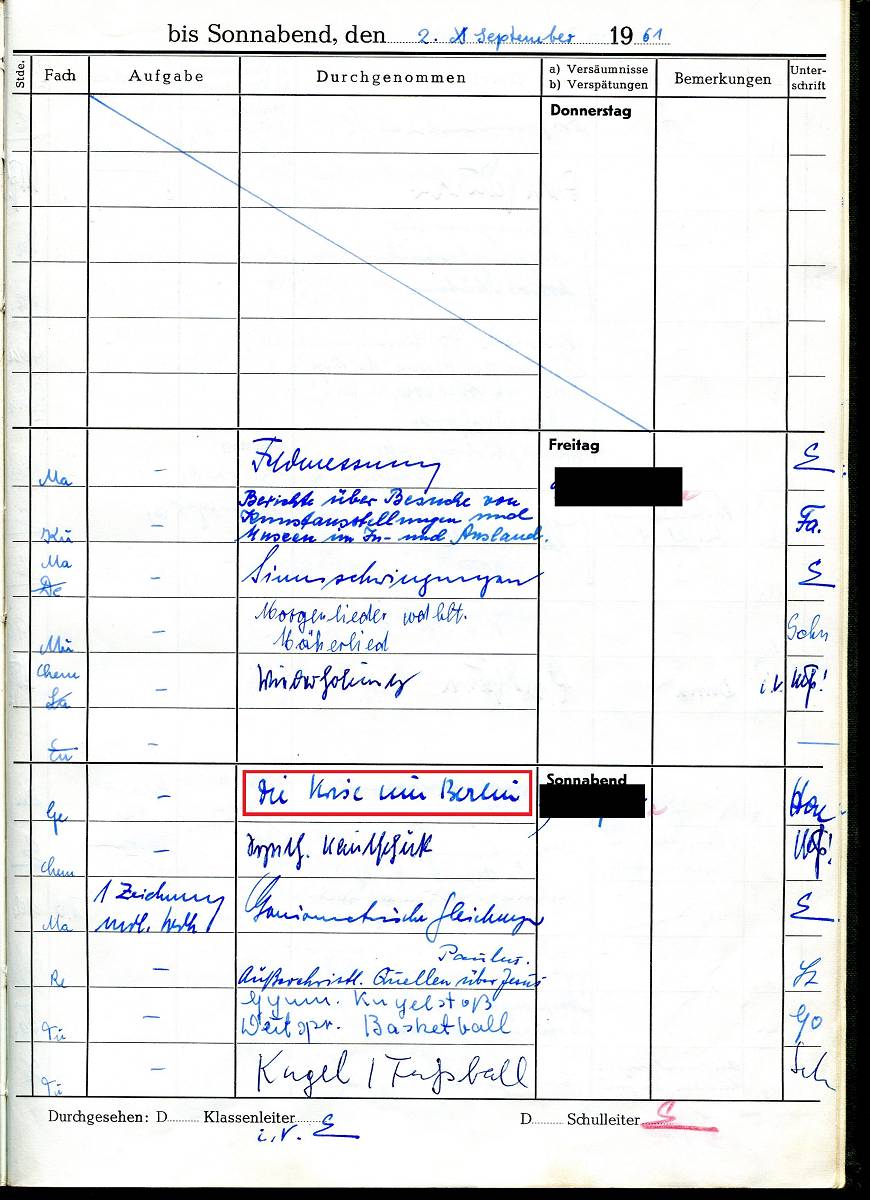 bis Sonnabend, den 2. September 1961
Stde. Fach Aufgabe Durchgenommen a) Versäumnisse b) Verspätungen Bemerkungen Unter-schrift
Donnerstag
Freitag
Ma – Feldmessung E
Kü – Berichte über Besuche von
Kunstausstellungen und
Museen im In- und Ausland. Fa.
Ma
De – Sinusschwingungen E
Mü – Morgenlieder
Mäherlied Sohn
Chem
La – Wiederholung i.V.
–
Sonnabend
Ge – Die Krise um Berlin
Chem – Synth. Kautschuk
Ma 1 Zeichnung
Goniometrische Gleichungen E
Re – Paulus.
Außerchristl. Quellen über Jesus
Tü – Gymn. Kugelstoß
Weitspr. Basketball Go
Tü – Kugel / Fußball Sch
Durchgesehen: D........ Klassenleiter i.V. E D........ Schulleiter E